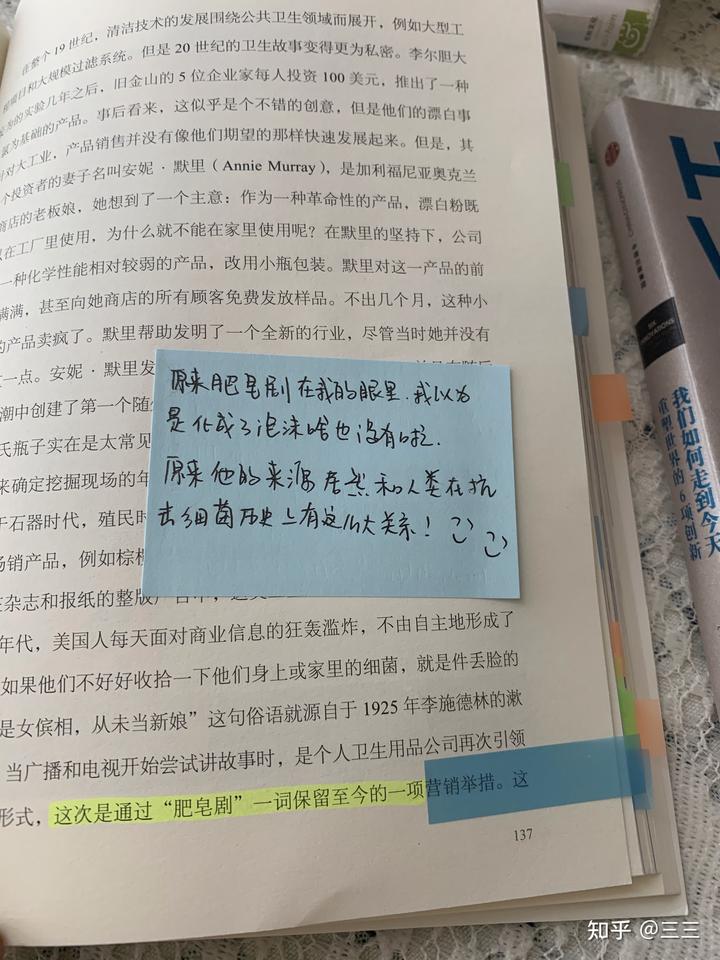 在整个19世纪，清洁技术的发展围绕公共卫生领域而展开，例如大型工
项目和大规模过滤系统。但是20世纪的卫生故事变得更为私密。李尔胆大
为的实验几年之后，旧金山的5位企业家每人投资100美元，推出了一种
氯为基础的产品。事后看来，这似乎是个不错的创意，但是他们的漂白事
对大工业，产品销售并没有像他们期望的那样快速发展起来。但是，其
个投资者的妻子名叫安妮·默里（Annie Murray），是加利福尼亚奥克兰
商店的老板娘，她想到了一个主意：作为一种革命性的产品，漂白粉既
在工厂里使用，为什么就不能在家里使用呢？在默里的坚持下，公司
一种化学性能相对较弱的产品，改用小瓶包装。默里对这一产品的前
满满，甚至向她商店的所有顾客免费发放样品。不出几个月，这种小
的产品卖疯了。默里帮助发明了一个全新的行业，尽管当时她并没有
一点。安妮·默里发
潮中创建了第一个随
氏瓶子实在是太常见
来确定挖掘现场的年
于石器时代，殖民时
畅销产品，例如棕榄
在杂志和报纸的整版广告中，
年代，美国人每天面对商业信息的狂轰滥炸，不由自主地形成了
如果他们不好好收拾一下他们身上或家里的细菌，就是件丢脸的
是女傧相，从未当新娘”这句俗语就源自于1925年李施德林的漱
当广播和电视开始尝试讲故事时，是个人卫生用品公司再次引领
形式，这次是通过“肥皂剧”一词保留至今的一项营销举措。这
137
原来肥皂剧在我的眼里.我以为
是化成了泡沫啥也没有啦.
原来他的来源居然和人类在抗
击细菌历史上有这么大关系！
我们如何走到今天
重塑世界的6项创新
中信出版集团
知乎 @三三